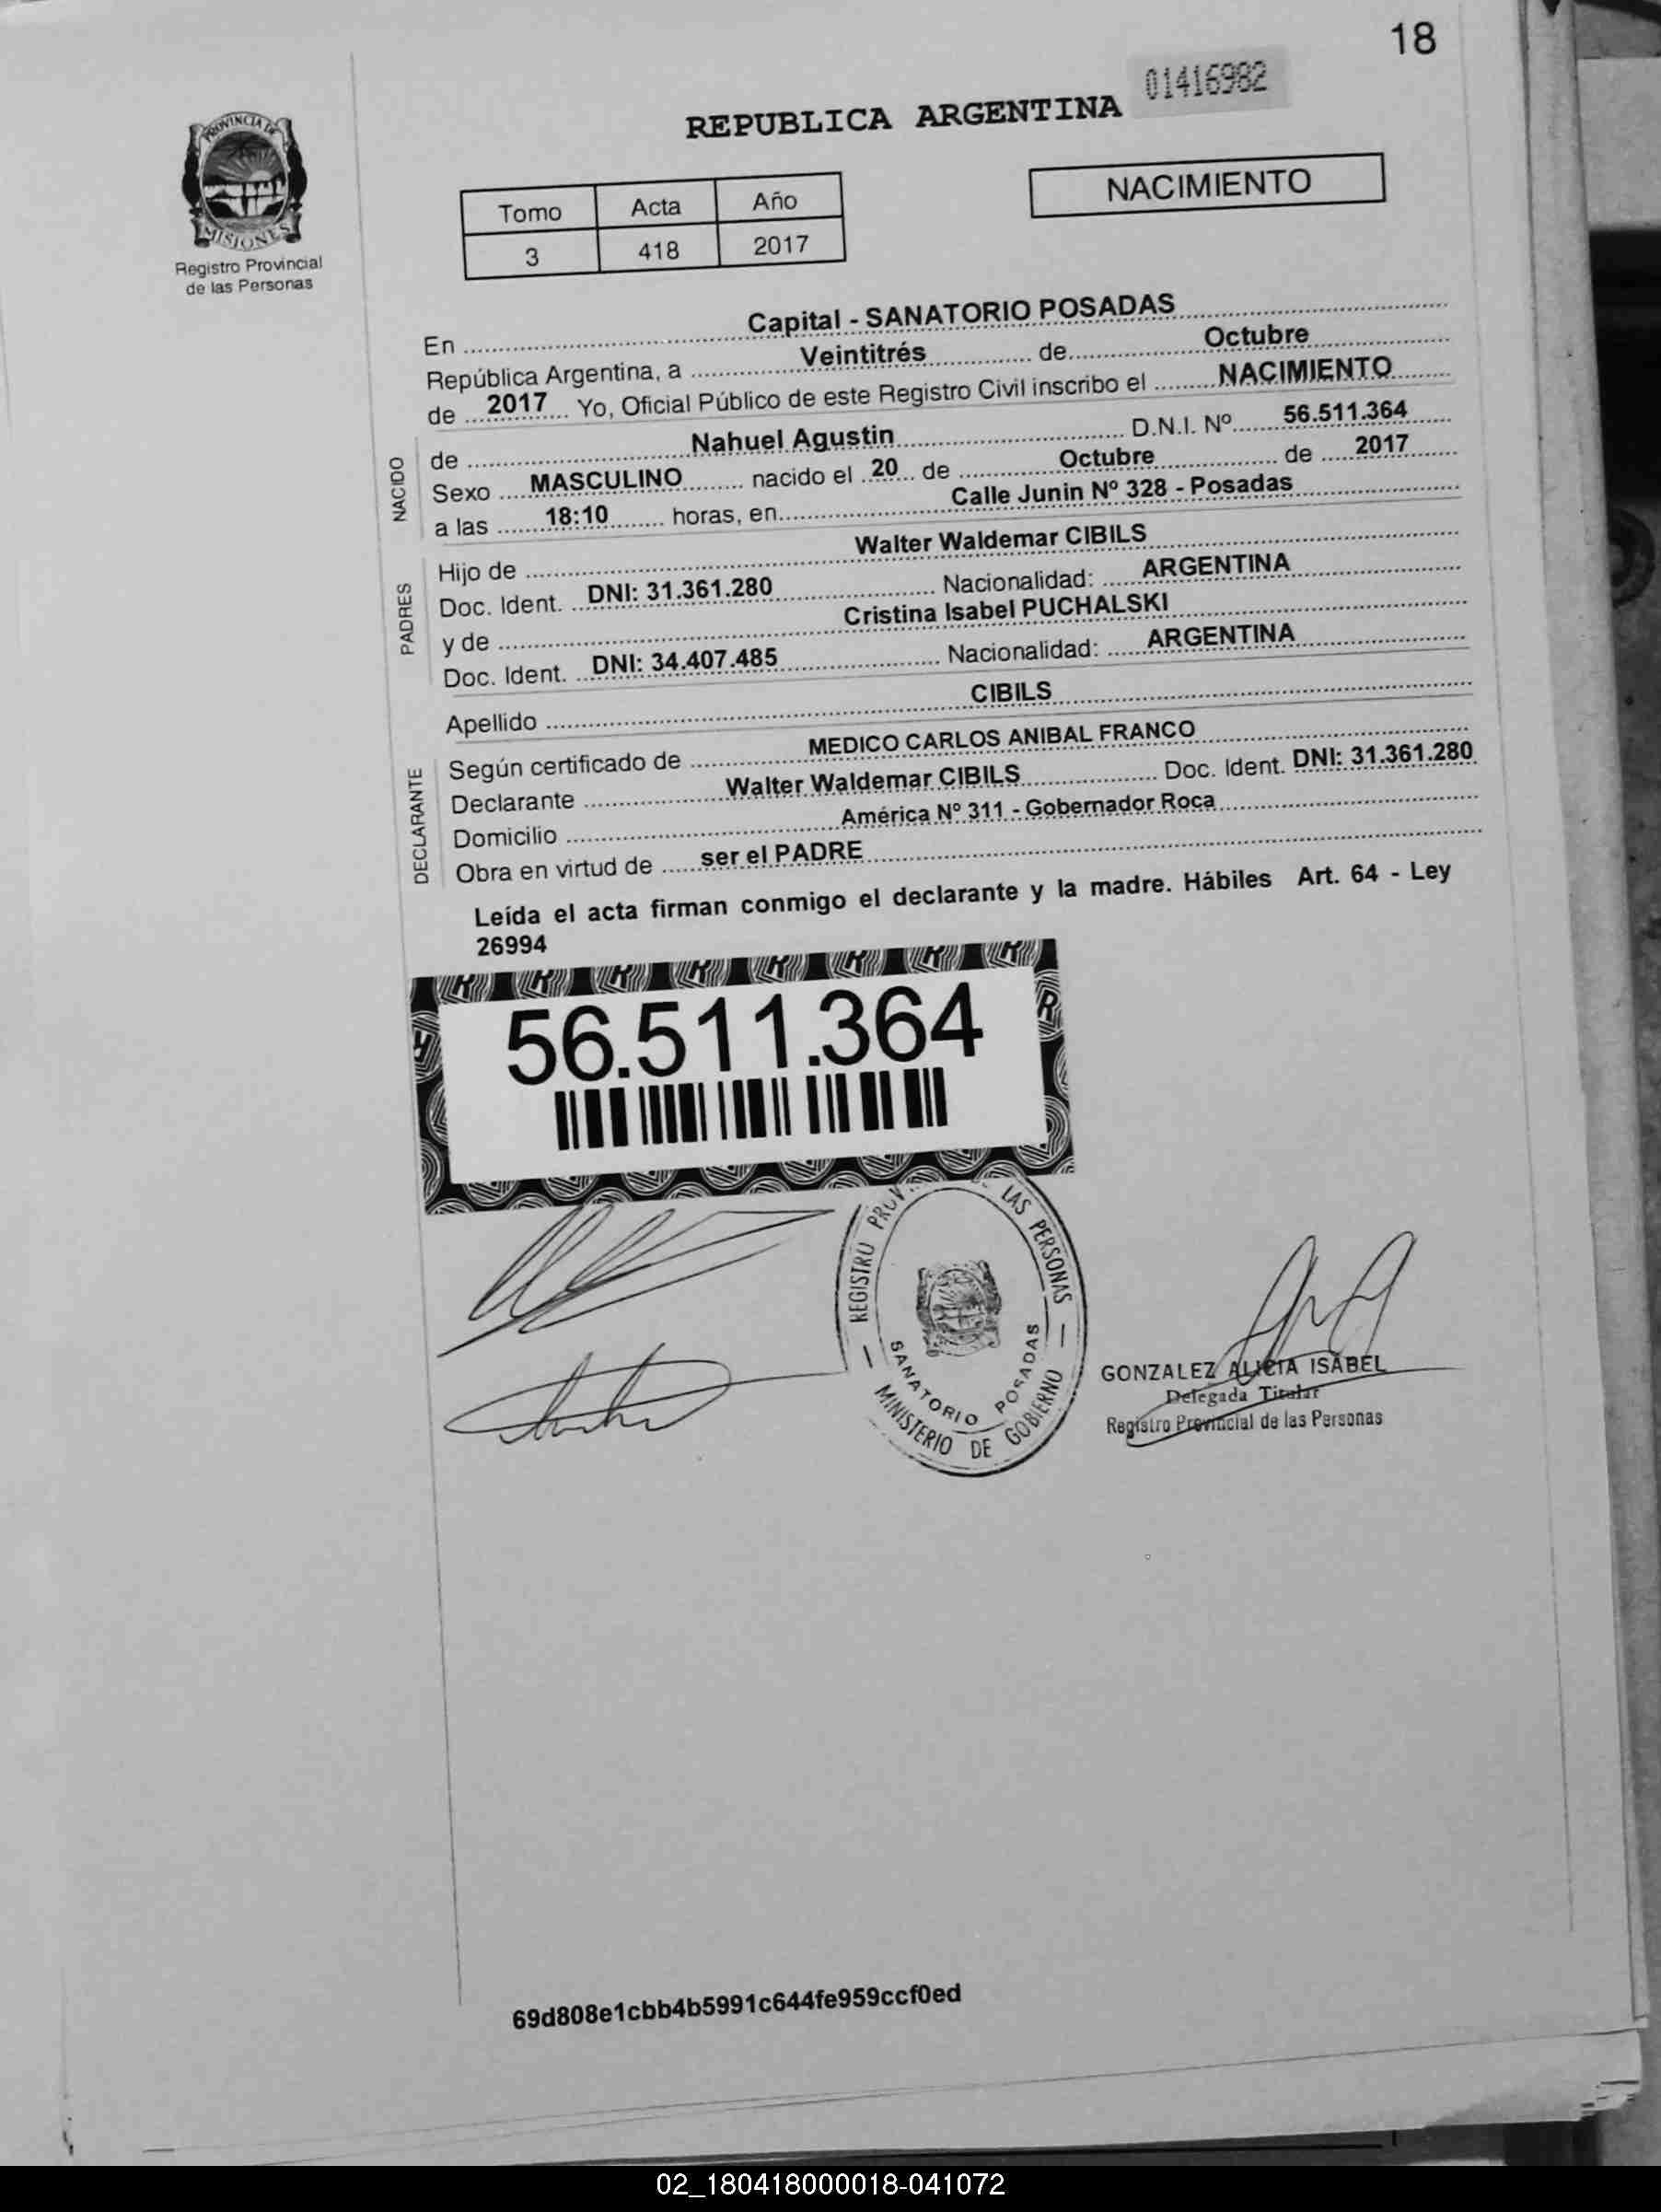 18
01416982
REPUBLICA ARGENTINA
PROVINCIA DE
MISIONES
Registro Provincial
de las Personas
Tomo Acta Año
3 418 2017
NACIMIENTO
En Capital - SANATORIO POSADAS
República Argentina, a Veintitrés de Octubre
de 2017 Yo, Oficial Público de este Registro Civil inscribo el NACIMIENTO
NACIDO
de Nahuel Agustin D.N.I. Nº 56.511.364
Sexo MASCULINO nacido el 20 de Octubre de 2017
a las 18:10 horas, en Calle Junin Nº 328 - Posadas
PADRES
Hijo de Walter Waldemar CIBILS
Doc. Ident. DNI: 31.361.280 Nacionalidad: ARGENTINA
y de Cristina Isabel PUCHALSKI
Doc. Ident. DNI: 34.407.485 Nacionalidad: ARGENTINA
Apellido CIBILS
DECLARANTE
Según certificado de MEDICO CARLOS ANIBAL FRANCO
Declarante Walter Waldemar CIBILS Doc. Ident. DNI: 31.361.280
Domicilio América Nº 311 - Gobernador Roca
Obra en virtud de ser el PADRE
Leída el acta firman conmigo el declarante y la madre. Hábiles Art. 64 - Ley
26994
56.511.364
REGISTRO LAS PERSONAS
SANATORIO POSADAS
MINISTERIO DE GOBIERNO
GONZALEZ ALICIA ISABEL
Delegada Titular
Registro Provincial de las Personas
69d808e1cbb4b5991c644fe959ccf0ed
02_180418000018-041072